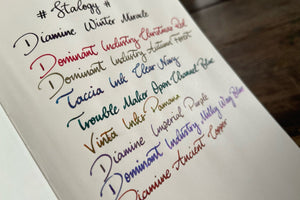 # Stalogy #
Diamine Winter Miracle
Dominant Industry Christmas Red
Dominant Industry Autumn Forest
Taccia Ink Clear Navy
Trouble Maker Open Channel Blue
Vinta Inks Panana
Diamine Imperial Purple
Dominant Industry Milky Way Blue
Diamine Ancient Copper